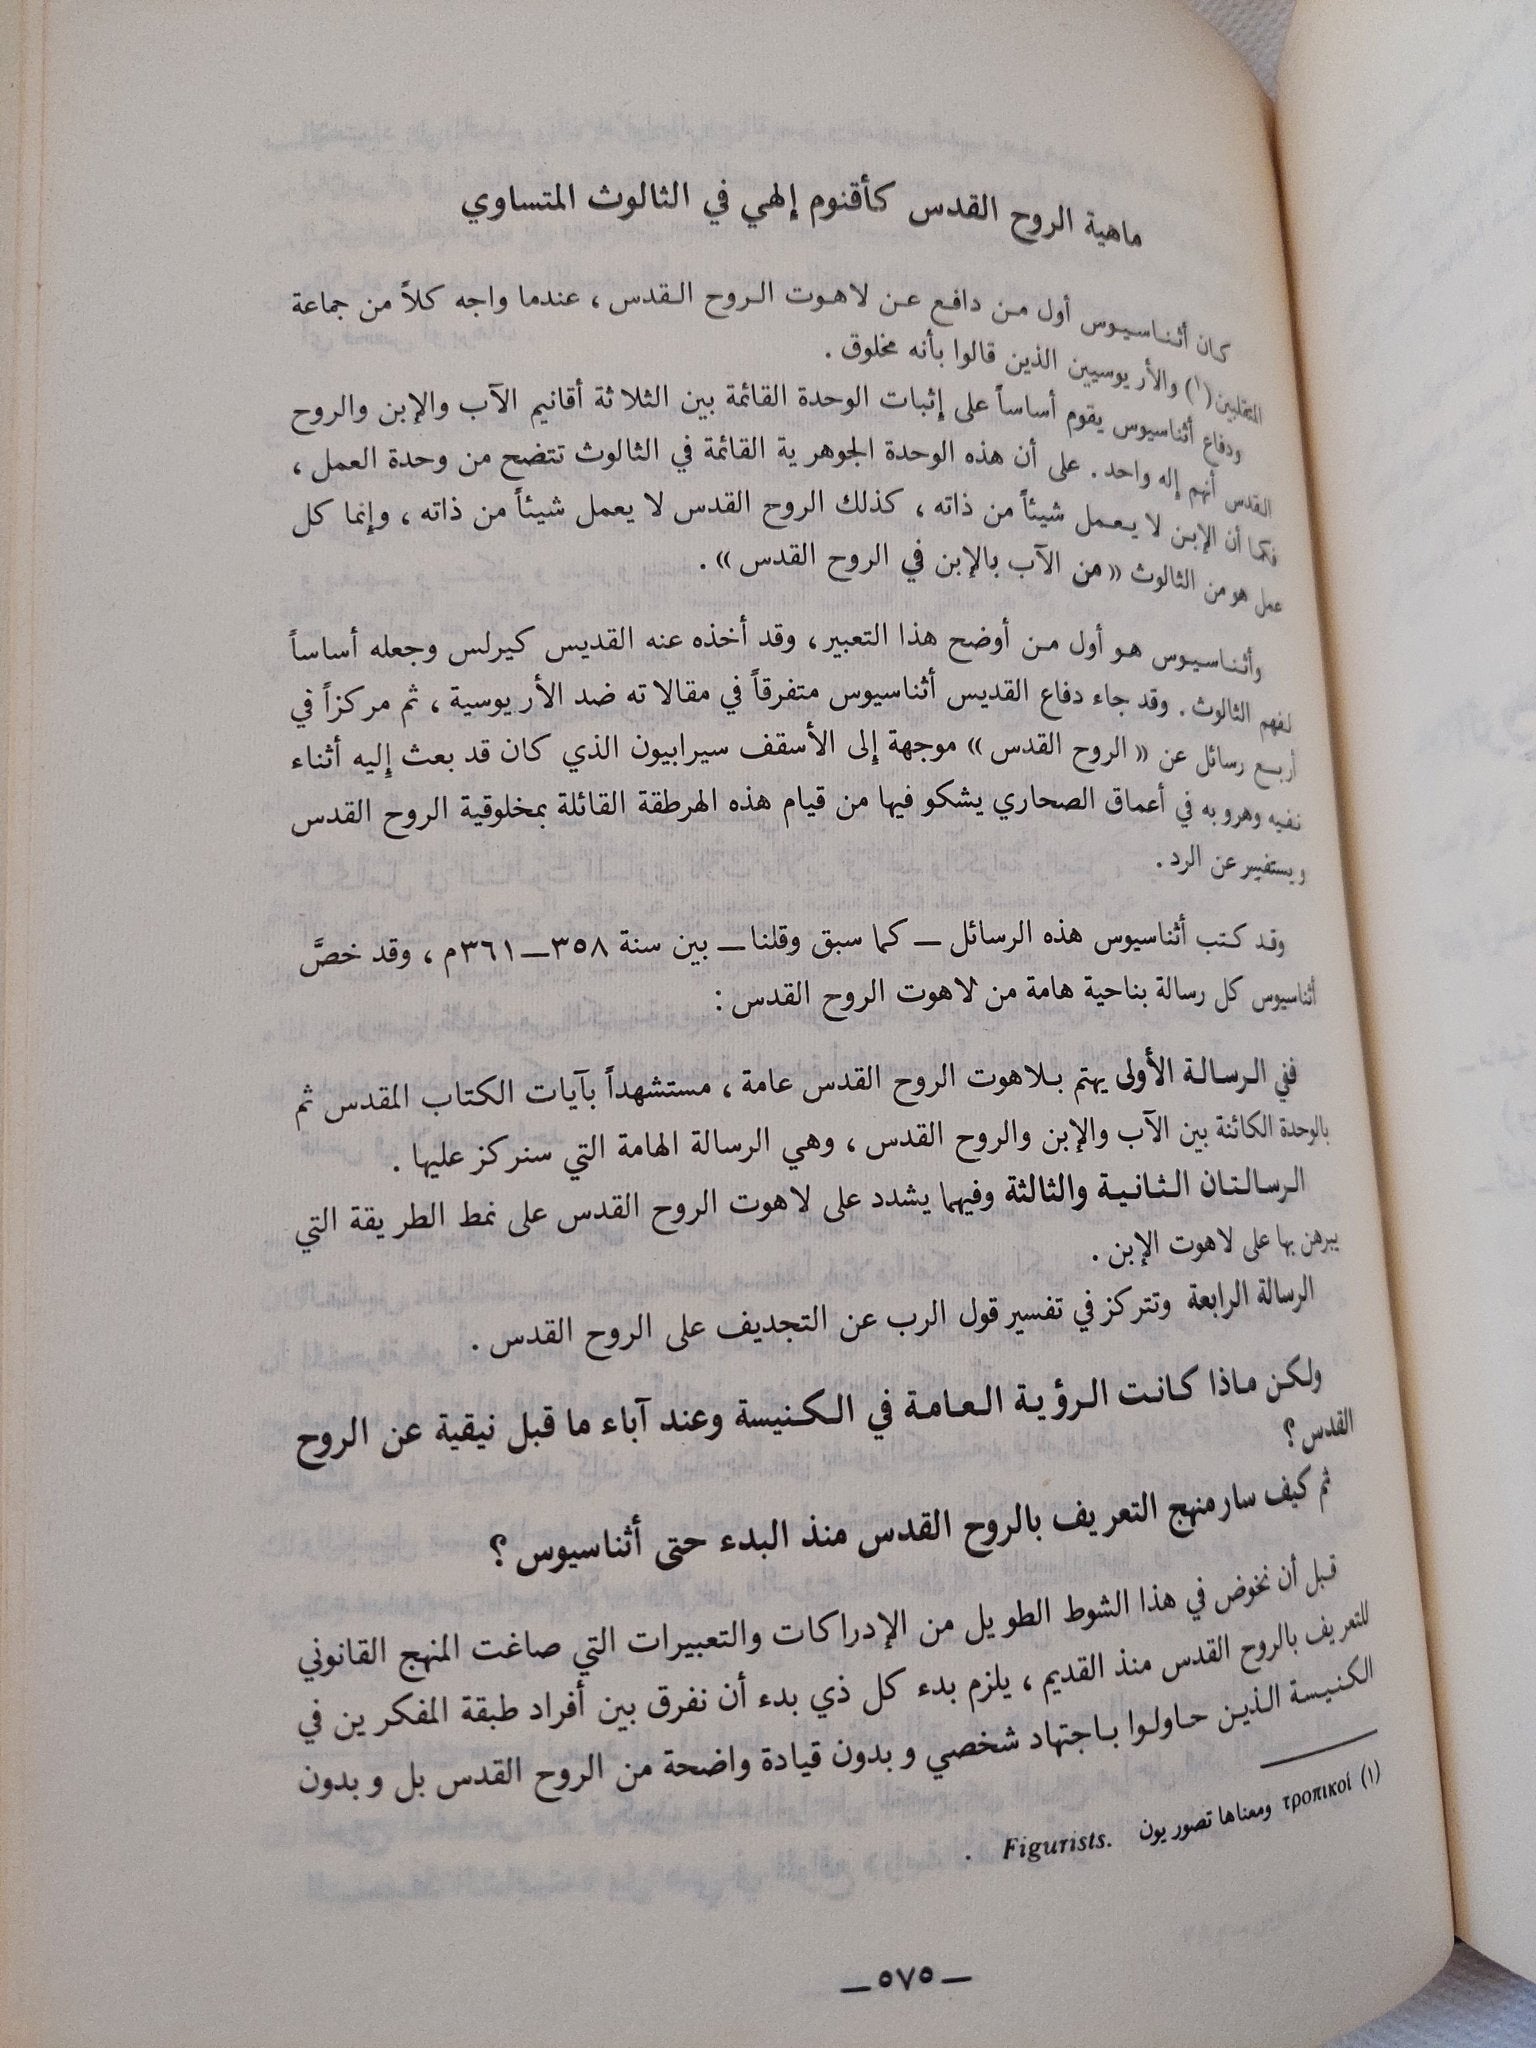 ماهية الروح القدس كأقنوم إلهي في الثالوث المتساوي
كان أثناسيوس أول من دافع عن لاهوت الروح القدس ، عندما واجه كلاً من جماعة
(١) والأريوسيين الذين قالوا بأنه مخلوق .
ودفاع أثناسيوس يقوم أساساً على إثبات الوحدة القائمة بين الثلاثة أقانيم الآب والإبن والروح
القدس أنهم إله واحد . على أن هذه الوحدة الجوهرية القائمة في الثالوث تتضح من وحدة العمل ،
فكما أن الإبن لا يعمل شيئاً من ذاته ، كذلك الروح القدس لا يعمل شيئاً من ذاته ، وإنما كل
عمل هو من الثالوث «من الآب بالإبن في الروح القدس» .
وأثناسيوس هو أول من أوضح هذا التعبير ، وقد أخذه عنه القديس كيرلس وجعله أساساً
لفهم الثالوث . وقد جاء دفاع القديس أثناسيوس متفرقاً في مقالاته ضد الأريوسية ، ثم مركزاً في
أربع رسائل عن «الروح القدس» موجهة إلى الأسقف سيرابيون الذي كان قد بعث إليه أثناء
نفيه وهروبه في أعماق الصحاري يشكو فيها من قيام هذه الهرطقة القائلة بمخلوقية الروح القدس
ويستفسر عن الرد .
وقد كتب أثناسيوس هذه الرسائل ــ كما سبق وقلنا ــ بين سنة ٣٥٨ــ٣٦١م ، وقد خصَّ
أثناسيوس كل رسالة بناحية هامة من لاهوت الروح القدس :
ففي الرسالة الأولى يهتم بلاهوت الروح القدس عامة ، مستشهداً بآيات الكتاب المقدس ثم
بالوحدة الكائنة بين الآب والإبن والروح القدس ، وهي الرسالة الهامة التي سنركز عليها .
الرسالتان الثانية والثالثة وفيهما يشدد على لاهوت الروح القدس على نمط الطريقة التي
يبرهن بها على لاهوت الإبن .
الرسالة الرابعة وتتركز في تفسير قول الرب عن التجديف على الروح القدس .
ولكن ماذا كانت الرؤية العامة في الكنيسة وعند آباء ما قبل نيقية عن الروح
القدس ؟
ثم كيف سار منهج التعريف بالروح القدس منذ البدء حتى أثناسيوس ؟
قبل أن نخوض في هذا الشوط الطويل من الإدراكات والتعبيرات التي صاغت المنهج القانوني
للتعريف بالروح القدس منذ القديم ، يلزم بدء كل ذي بدء أن نفرق بين أفراد طبقة المفكرين في
الكنيسة الذين حاولوا باجتهاد شخصي وبدون قيادة واضحة من الروح القدس بل وبدون
(١) τροπικοί ومعناها تصوريون Figurists. .
ــ ٥٧٥ ــ